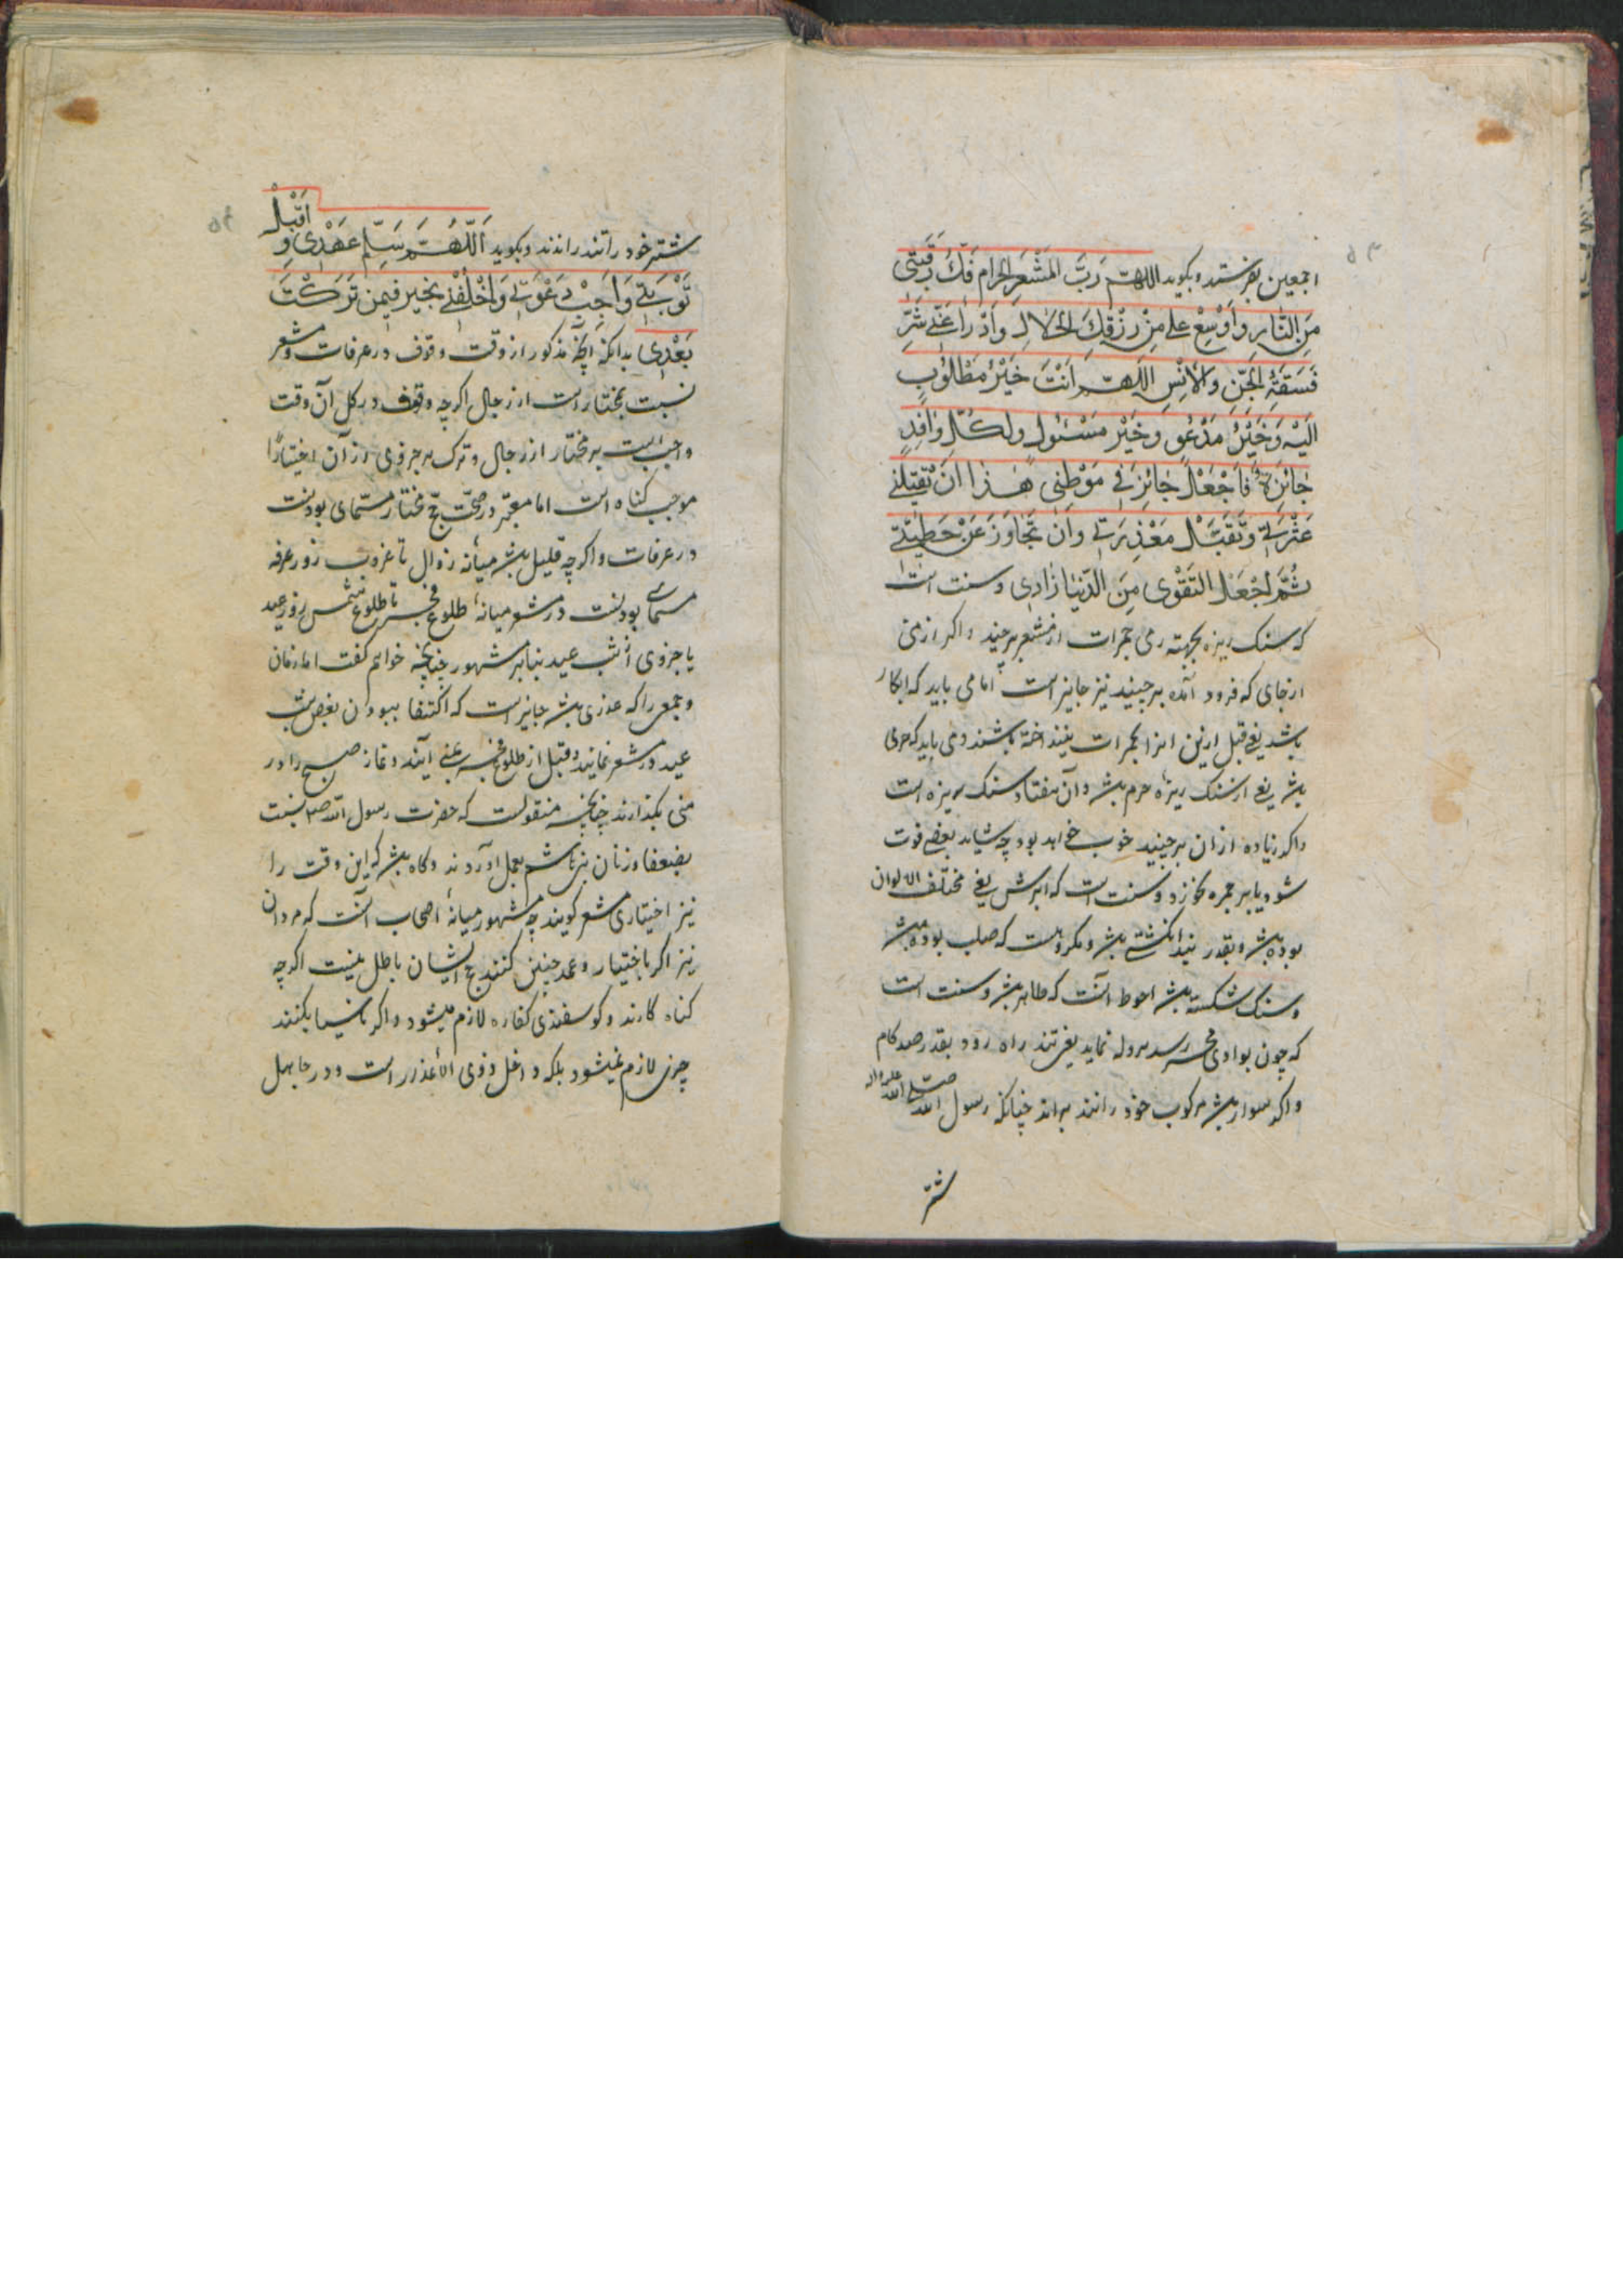 اجمعین بفرستد و بگوید اللهم رَبَّ المَشْعَرِ الحرام فَكَّ رَقَبَتی
مِنَ النّارِ وَاَوْسِعْ علی مِنْ رِزْقِكَ الحَلالِ وَادْرَأ عَنّی شَرَّ
فَسَقَةِ الجِنِّ وَالاِنْسِ اللهم اَنْتَ خَیْرُ مَطْلُوبٍ
اِلَیْهِ وَخَیْرُ مَدْعُوٍ وخَیْر مَسْئولٍ ولِكُلِّ وافِدٍ
جائِزَةٌ فَاجْعَلْ جائِزَتی فی مَوْطِنی هٰذا اَنْ تُقیلَنی
عَثْرَتی وَتَقَبَّلَ مَعْذِرَتی وَاَنْ تَجاوَزَ عَنْ خَطیئَتی
ثُمَّ اجْعَلِ التَقْوی مِنَ الدُّنیا زادی و سنت است
که سنک ریزه بجهته رمی جمرات از مشعر برچیند و اکر از منی
از جای که فرود آمده برچینند نیز جایز است اما می باید که ابکار
باشد یعنی قبل ازین انرا بجمرات نینداخته باشند و می باید که حرمی
باشد یعنی از سنک ریزه حرم باشد و آن هفتاد سنک ریزه است
واکر زیاده ازان برچینید خوب خواهد بود چه شاید بعضی فوت
شود یا بر جمره نخورد و سنت است که ابرش یعنی مختلف الالوان
بوده باشد و بقدر بند انکشتی باشد و مکروهست که صلب بوده باشد
وسنک شکسته باشد احوط آنست که طاهر باشد و سنت است
که چون بوادی محسر رسد هروله نماید یعنی تند راه رود بقدر صد کام
واکر سوار باشد مرکوب خود را تند براند چنانکه رسول الله صلی الله علیه واله
شتر
شتر خود را تند راندند و بگوید اَللّهُمَّ سَلِّم عَهْدی وَ اقْبَلْ
تَوْبَتی وَاَجِبْ دَعْوَتی وَاخْلُفْنی بخیر فیمن تَرَكْتُ
بَعْدی بدانکه آنچه مذکور از وقت وقوف در عرفات و مشعر
نسبت بمختار است از رجال اکرچه وقوف در کل آن وقت
واجب است بر مختار از رجال و ترک هر جزوی از آن اختیارًا
موجب کناه است اما معتبر در صحت حج مختار مسمّای بودنست
در عرفات و اکرچه قلیل باشد میانه زوال تا غروب روز عرفه
مسمای بودنست در مشعر میانهٔ طلوع فجر تا طلوع شمس روز عید
یا جزوی از شب عید بنابر مشهور چنانچه خواهم کفت اما زنان
و جمعی را که عذری باشد جایز است که اکتفا ببودن بعض شب
عید در مشعر نمایند و قبل از طلوع فجر بمنی آیند و نماز صبح را در
منی بکذارند چنانچه منقولست که حضرت رسول الله ص نسبت
بضعفا و زنان بنی هاشم بعمل آوردند و کاه باشد که این وقت را
نیز اختیاری مشعر کویند چه مشهور میانهٔ اصحاب آنست که مردان
نیز اکر باختیار و عمد چنین کنند حج ایشان باطل نیست اکرچه
کناه کارند و کوسفندی کفاره لازم میشود و اکر ناسیا بکنند
چیزی لازم نمیشود بلکه داخل ذوی الأعذار است و در جاهل